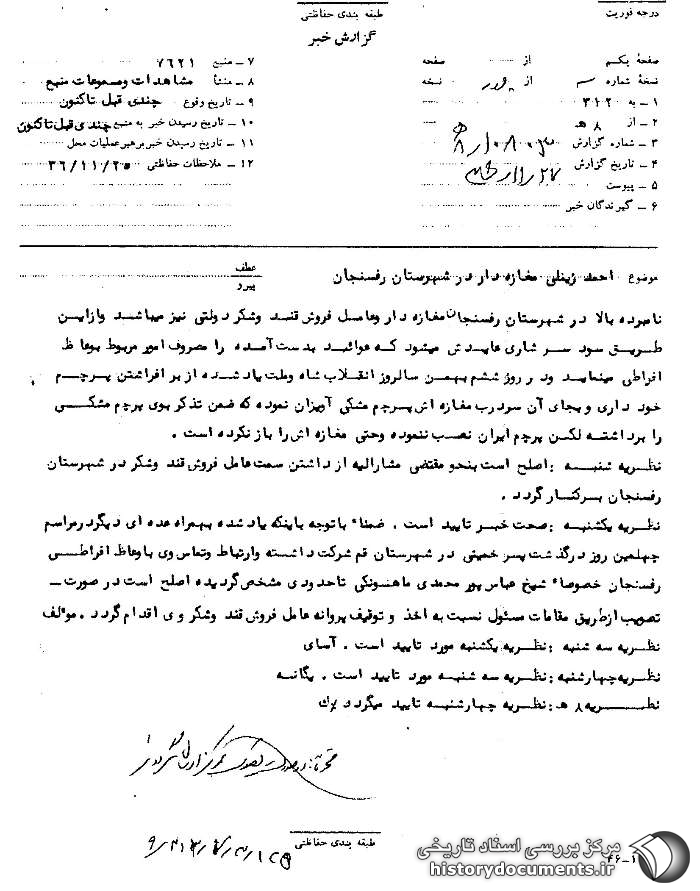 درجه فوریت
طبقه بندی حفاظتی
گزارش خبر
صفحهٔ یکم از صفحه
نسخهٔ شماره سه از نسخه
۱ ـ به ۳۱۲
۲ ـ از ۸ ه
۳ ـ شماره گزارش
۴ ـ تاریخ گزارش
۵ ـ پیوست
۶ ـ گیرندگان خبر
۷ ـ منبع ۷۶۲۱
۸ ـ منشأ مشاهدات ومسموعات منبع
۹ ـ تاریخ وقوع چندی قبل تاکنون
۱۰ ـ تاریخ رسیدن خبر به منبع چندی قبل تاکنون
۱۱ ـ تاریخ رسیدن خبر برهبر عملیات محل
۱۲ ـ ملاحظات حفاظتی ۳۶/۱۱/۲۵
موضوع احمد زینلی مغازه دار در شهرستان رفسنجان
عطف
پیرو
نامبرده بالا در شهرستان رفسنجان مغازه دار وعامل فروش قند وشکر دولتی نیز میباشد وازاین
طریق سود سرشاری عایدش میشود که عوائید بدست آمده را مصروف امور مربوط بوعاظ
افراطی مینماید ودر روز ششم بهمن سالروز انقلاب شاه وملت یاد شده از بر افراشتن پرچم
خود داری و بجای آن سردرب مغازه اش پرچم مشکی آویزان نموده که ضمن تذکر بوی پرچم مشکی
را برداشته لکن پرچم ایران نصب ننموده وحتی مغازه اش را باز نکرده است .
نظریه شنبه : اصلح است بنحو مقتضی مشارالیه از داشتن سمت عامل فروش قند وشکر در شهرستان
رفسنجان برکنار گردد .
نظریه یکشنبه : صحت خبر تایید است . ضمناً با توجه باینکه یاد شده بهمراه عده ای دیگر در مراسم
چهلمین روز درگذشت پسر خمینی در شهرستان قم شرکت داشته وارتباط وتماس وی با وعاظ افراطی
رفسنجان خصوصاً شیخ عباس پور محمدی ماهونکی تاحدودی مشخص گردیده اصلح است در صورت ـ
تصویب از طریق مقامات مسئول نسبت به اخذ و توقیف پروانه عامل فروش قند وشکر وی اقدام گردد . مؤلف
نظریه سه شنبه : نظریه یکشنبه مورد تایید است . آسای
نظریه چهارشنبه : نظریه سه شنبه مورد تایید است . یگانه
نظریه ۸ ه : نظریه چهارشنبه تایید میگردد
طبقه بندی حفاظتی
مرکز بررسی اسناد تاریخی
historydocuments.ir